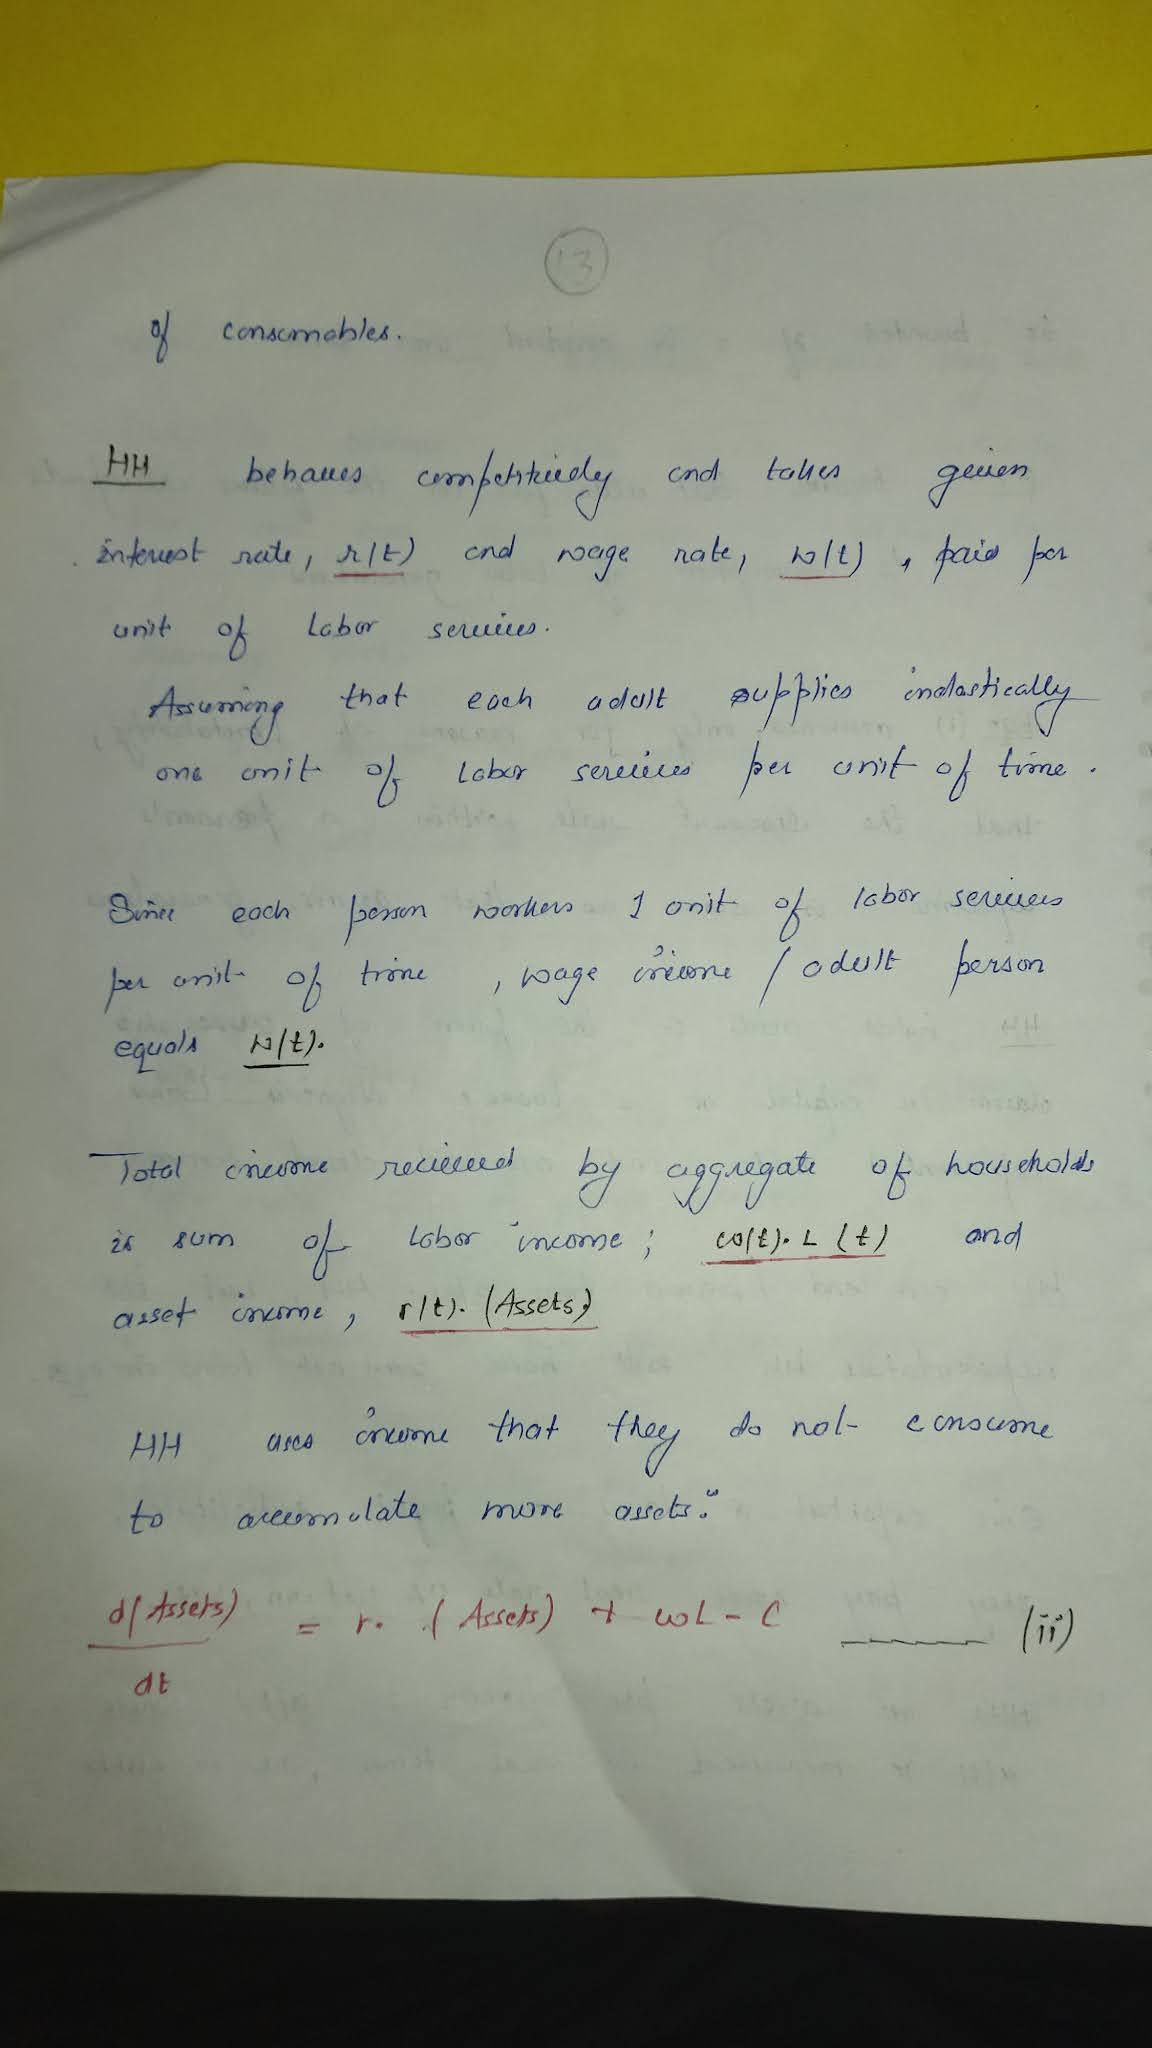 13
of consumables.
HH behaves competitively and takes given
interest rate, r(t) and wage rate, w(t), paid per
unit of labor services.
Assuming that each adult supplies inelastically
one unit of labor services per unit of time.
Since each person workers 1 unit of labor services
per unit of time, wage income / adult person
equals w(t).
Total income recieved by aggregate of households
is sum of labor income; w(t). L (t) and
asset income, r(t). (Assets)
HH uses income that they do not consume
to accumulate more assets:
d(Assets)
= r. (Assets) + wL - C ______ (ii)
dt